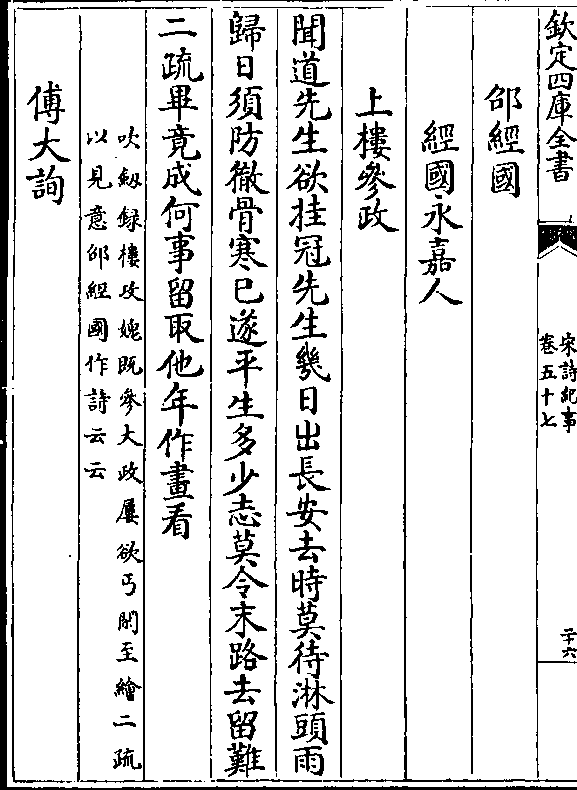 欽定四庫全書
宋詩紀事
卷五十七
二十六
邵經國
經國永嘉人
上樓參政
聞道先生欲挂冠先生幾日出長安去時莫待淋頭雨
歸日須防徹骨寒已遂平生多少志莫令末路去留難
二疏畢竟成何事留取他年作畫看
吹劔録樓攻媿既參大政屢欲丐閒至繪二疏
以見意邵經國作詩云云
傅大詢